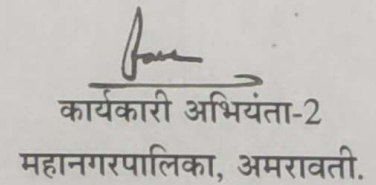 कार्यकारी अभियंता-2
महानगरपालिका, अमरावती.